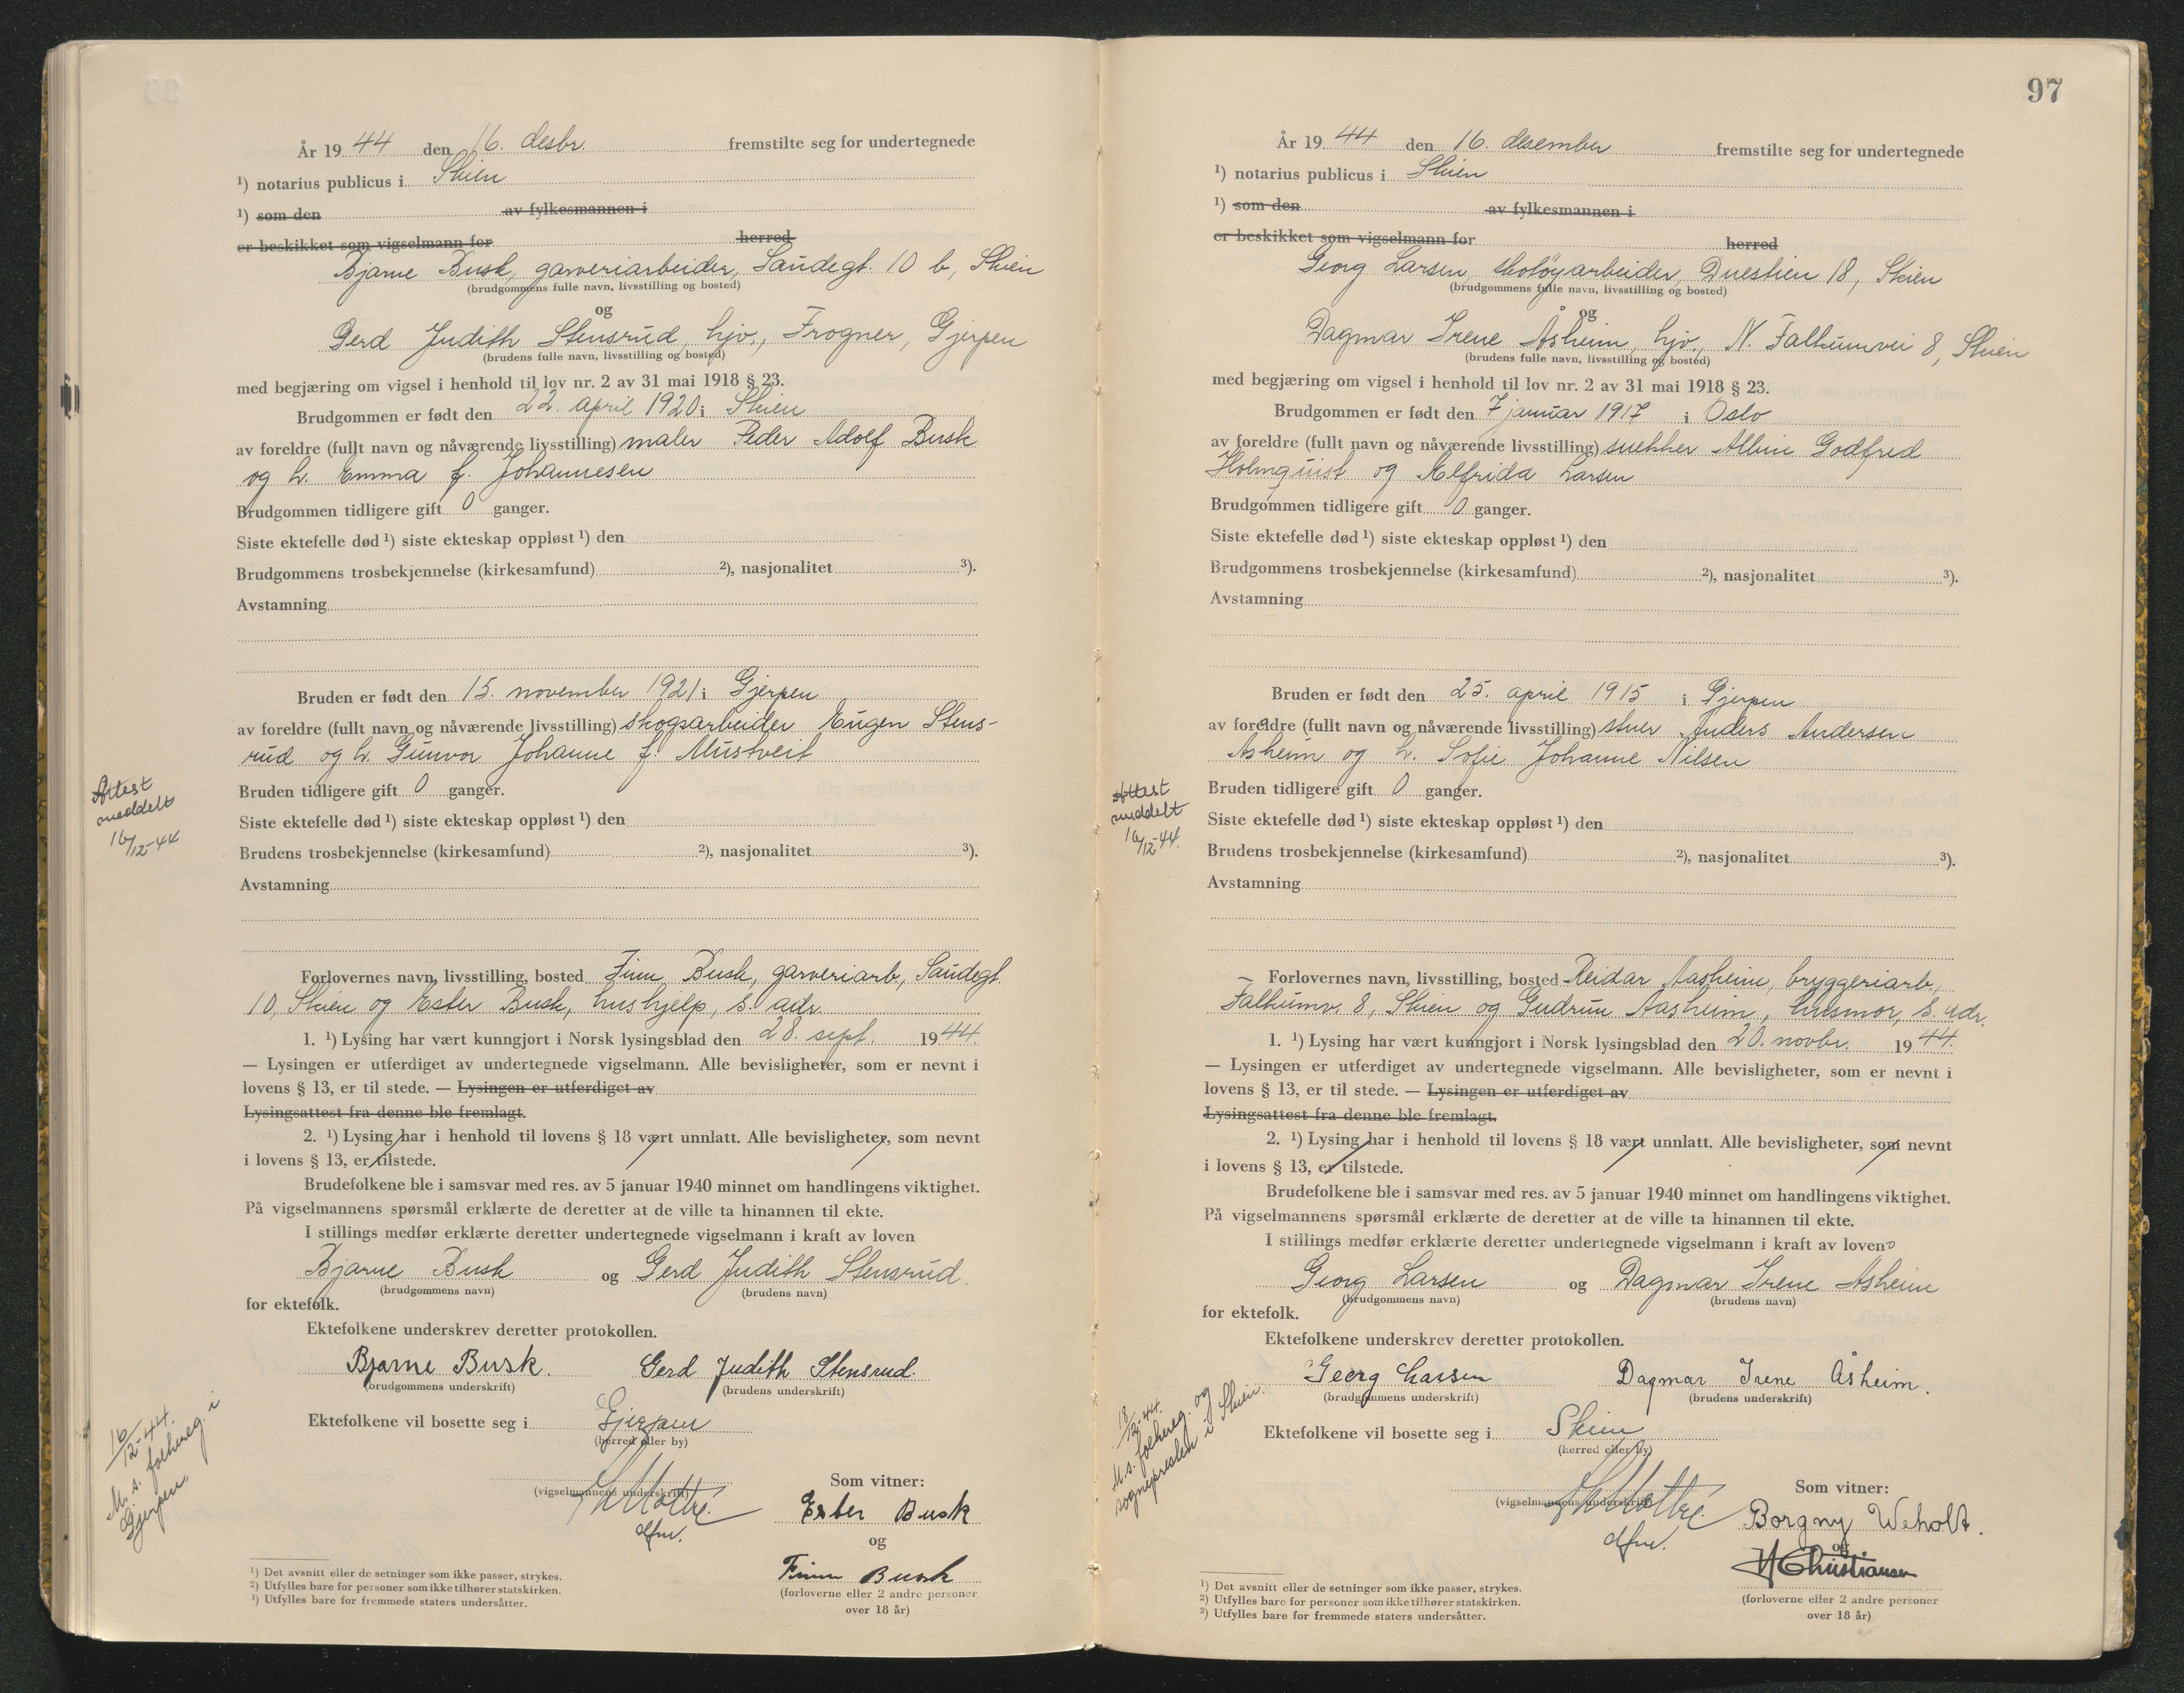 År 1944 den 16. desbr. fremstilte seg for undertegnede
¹) notarius publicus i Skien
¹) som den av fylkesmannen i
er beskikket som vigselmann for herred
Bjarne Busk, garveriarbeider, Saudegt. 10 b, Skien
(brudgommens fulle navn, livsstilling og bosted)
og
Gerd Judith Stensrud, hjv., Frogner, Gjerpen
(brudens fulle navn, livsstilling og bosted)
med begjæring om vigsel i henhold til lov nr. 2 av 31 mai 1918 § 23.
Brudgommen er født den 22. april 1920 i Skien
av foreldre (fullt navn og nåværende livsstilling) maler Peder Adolf Busk
og h. Emma f. Johannesen
Brudgommen tidligere gift 0 ganger.
Siste ektefelle død ¹) siste ekteskap oppløst ¹) den
Brudgommens trosbekjennelse (kirkesamfund) ²), nasjonalitet ³).
Avstamning
Bruden er født den 15. november 1921 i Gjerpen
av foreldre (fullt navn og nåværende livsstilling) skogsarbeider Eugen Stens-
rud og h. Gunvor Johanne f. Mustveit
Attest
meddelt
16/12-44
Bruden tidligere gift 0 ganger.
Siste ektefelle død ¹) siste ekteskap oppløst ¹) den
Brudens trosbekjennelse (kirkesamfund) ²), nasjonalitet ³).
Avstamning
Forlovernes navn, livsstilling, bosted Finn Busk, garveriarb., Saudegt.
10, Skien og Ester Busk, hushjelp, s. adr.
1. ¹) Lysing har vært kunngjort i Norsk lysingsblad den 28. sept. 1944.
— Lysingen er utferdiget av undertegnede vigselmann. Alle bevisligheter, som er nevnt i
lovens § 13, er til stede. — Lysingen er utferdiget av
Lysingsattest fra denne ble fremlagt.
2. ¹) Lysing har i henhold til lovens § 18 vært unnlatt. Alle bevisligheter, som nevnt
i lovens § 13, er tilstede.
Brudefolkene ble i samsvar med res. av 5 januar 1940 minnet om handlingens viktighet.
På vigselmannens spørsmål erklærte de deretter at de ville ta hinannen til ekte.
I stillings medfør erklærte deretter undertegnede vigselmann i kraft av loven
Bjarne Busk og Gerd Judith Stensrud.
(brudgommens navn) (brudens navn)
for ektefolk.
Ektefolkene underskrev deretter protokollen.
Bjarne Busk. Gerd Judith Stensrud.
(brudgommens underskrift) (brudens underskrift)
Ektefolkene vil bosette seg i Gjerpen
(herred eller by)
16/12-44.
M. s. folkereg. i
Gjerpen
(vigselmannens underskrift)
dfm.
Som vitner:
Ester Busk
og
Finn Busk
(forloverne eller 2 andre personer
over 18 år)
¹) Det avsnitt eller de setninger som ikke passer, strykes.
²) Utfylles bare for personer som ikke tilhører statskirken.
³) Utfylles bare for fremmede staters undersåtter.
97
År 1944 den 16. desember fremstilte seg for undertegnede
¹) notarius publicus i Skien
¹) som den av fylkesmannen i
er beskikket som vigselmann for herred
Georg Larsen, skotøyarbeider, Duestien 18, Skien
(brudgommens fulle navn, livsstilling og bosted)
og
Dagmar Irene Åsheim, hjv., N. Falkumvei 8, Skien
(brudens fulle navn, livsstilling og bosted)
med begjæring om vigsel i henhold til lov nr. 2 av 31 mai 1918 § 23.
Brudgommen er født den 7 januar 1917 i Oslo
av foreldre (fullt navn og nåværende livsstilling) snekker Albin Godfred
Holmquist og Alfrida Larsen
Brudgommen tidligere gift 0 ganger.
Siste ektefelle død ¹) siste ekteskap oppløst ¹) den
Brudgommens trosbekjennelse (kirkesamfund) ²), nasjonalitet ³).
Avstamning
Bruden er født den 25. april 1915 i Gjerpen
av foreldre (fullt navn og nåværende livsstilling) stuer Anders Andersen
Åsheim og h. Sofie Johanne Nilsen
Attest
meddelt
16/12-44.
Bruden tidligere gift 0 ganger.
Siste ektefelle død ¹) siste ekteskap oppløst ¹) den
Brudens trosbekjennelse (kirkesamfund) ²), nasjonalitet ³).
Avstamning
Forlovernes navn, livsstilling, bosted Reidar Aasheim, bryggeriarb.,
Falkumv. 8, Skien og Gudrun Aasheim, husmor, s. adr.
1. ¹) Lysing har vært kunngjort i Norsk lysingsblad den 20. novbr. 1944.
— Lysingen er utferdiget av undertegnede vigselmann. Alle bevisligheter, som er nevnt i
lovens § 13, er til stede. — Lysingen er utferdiget av
Lysingsattest fra denne ble fremlagt.
2. ¹) Lysing har i henhold til lovens § 18 vært unnlatt. Alle bevisligheter, som nevnt
i lovens § 13, er tilstede.
Brudefolkene ble i samsvar med res. av 5 januar 1940 minnet om handlingens viktighet.
På vigselmannens spørsmål erklærte de deretter at de ville ta hinannen til ekte.
I stillings medfør erklærte deretter undertegnede vigselmann i kraft av loven
Georg Larsen og Dagmar Irene Åsheim
(brudgommens navn) (brudens navn)
for ektefolk.
Ektefolkene underskrev deretter protokollen.
Georg Larsen Dagmar Irene Åsheim.
(brudgommens underskrift) (brudens underskrift)
Ektefolkene vil bosette seg i Skien
(herred eller by)
18/12-44.
M.s. folkereg. og
sognepresten i Skien.
(vigselmannens underskrift)
dfm.
Som vitner:
Borgny Weholt.
og
H Christiansen
(forloverne eller 2 andre personer
over 18 år)
¹) Det avsnitt eller de setninger som ikke passer, strykes.
²) Utfylles bare for personer som ikke tilhører statskirken.
³) Utfylles bare for fremmede staters undersåtter.